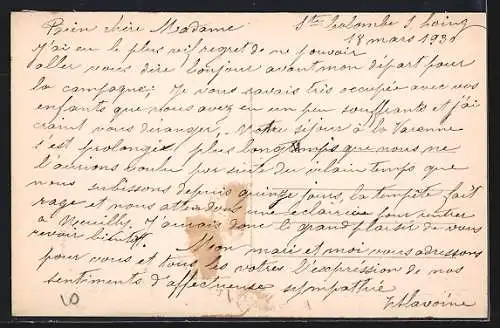 Bien chère Madame
Ste Colombe s. Loing
18 mars 1930
J'ai eu le plus vif regret de ne pouvoir
aller vous dire bonjour avant mon départ pour
la campagne; Je vous savais très occupée avec vos
enfants que vous avez eu un peu souffrants et j'ai
craint vous déranger, Notre séjour à la Varenne
s'est prolongé plus longtemps que nous ne
l'aurions voulu par suite du vilain temps que
nous subissons depuis quinze jours, la tempête fait
rage et nous attendons une éclaircie pour rentrer
à Neuilly. J'aurais donc le grand plaisir de vous
revoir bientôt. Mon mari et moi vous adressons
pour vous et tous les vôtres l'expression de nos
sentiments d'affectueuse sympathie
10